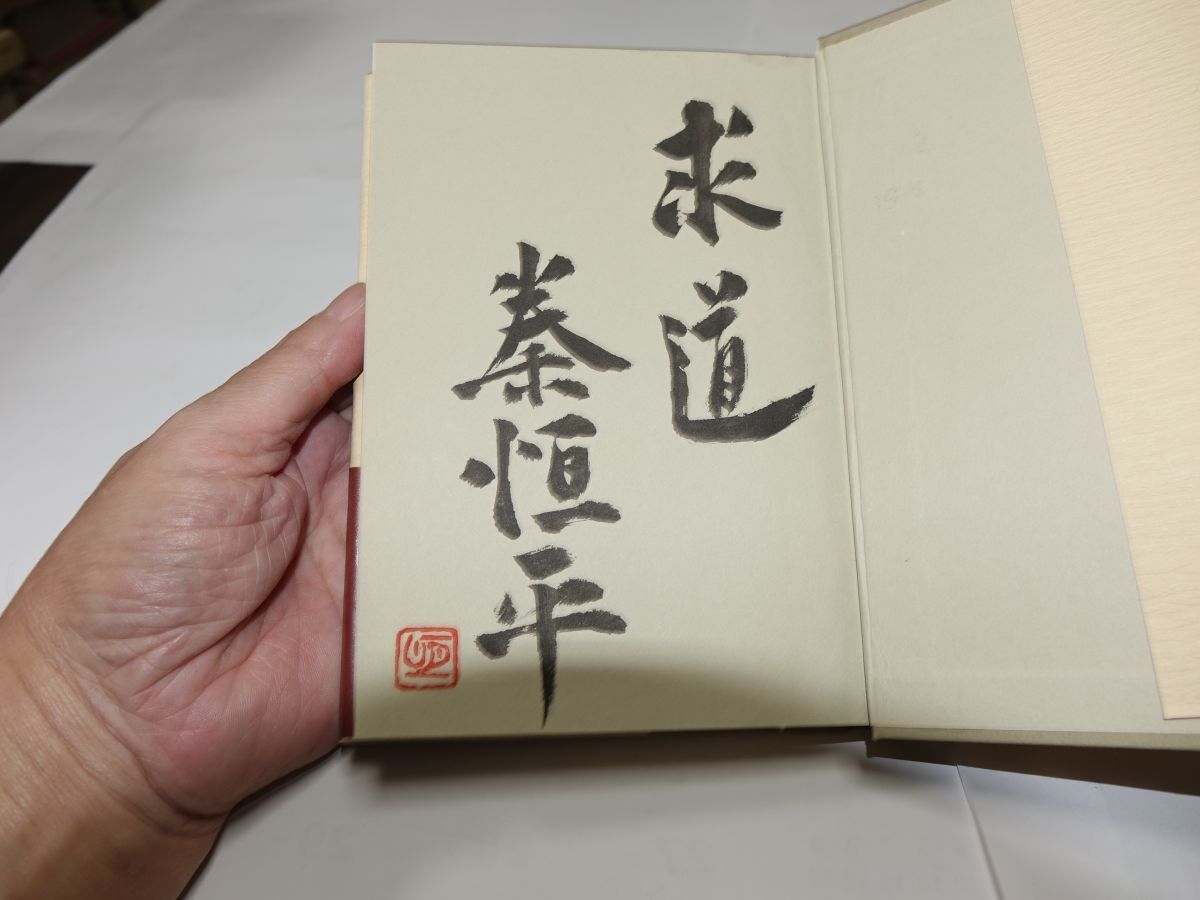 求道
秦恒平
恒